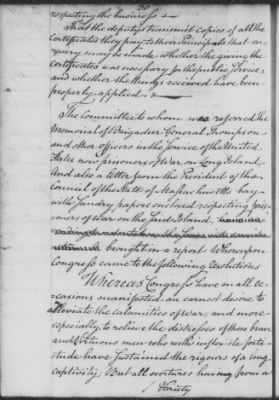 respecting the business —
That the deputys transmit copies of all the
Certificates they pay, to their Principals that en-
quiry may be made, whether the giving the
Certificates was necessary for the public service,
and whether the things received have been
properly applied. —
The Committee to whom was referred the
Memorial of Brigadier General Thompson
and other officers in the service of the United
States now prisoners of War on Long Island,
And also a letter from the President of the
Council of the State of Massachusetts bay—
with sundry papers enclosed respecting pris-
oners of war on the said Island,
brought in a report Whereupon
Congress came to the following resolutions
Whereas Congress have on all oc-
casions manifested an earnest desire to
alleviate the calamities of war, and more
especially to relieve the distresses of those brave
and virtuous men who with inflexible forti-
tude have sustained the rigours of a long
captivity; But all overtures having from a
/ Variety